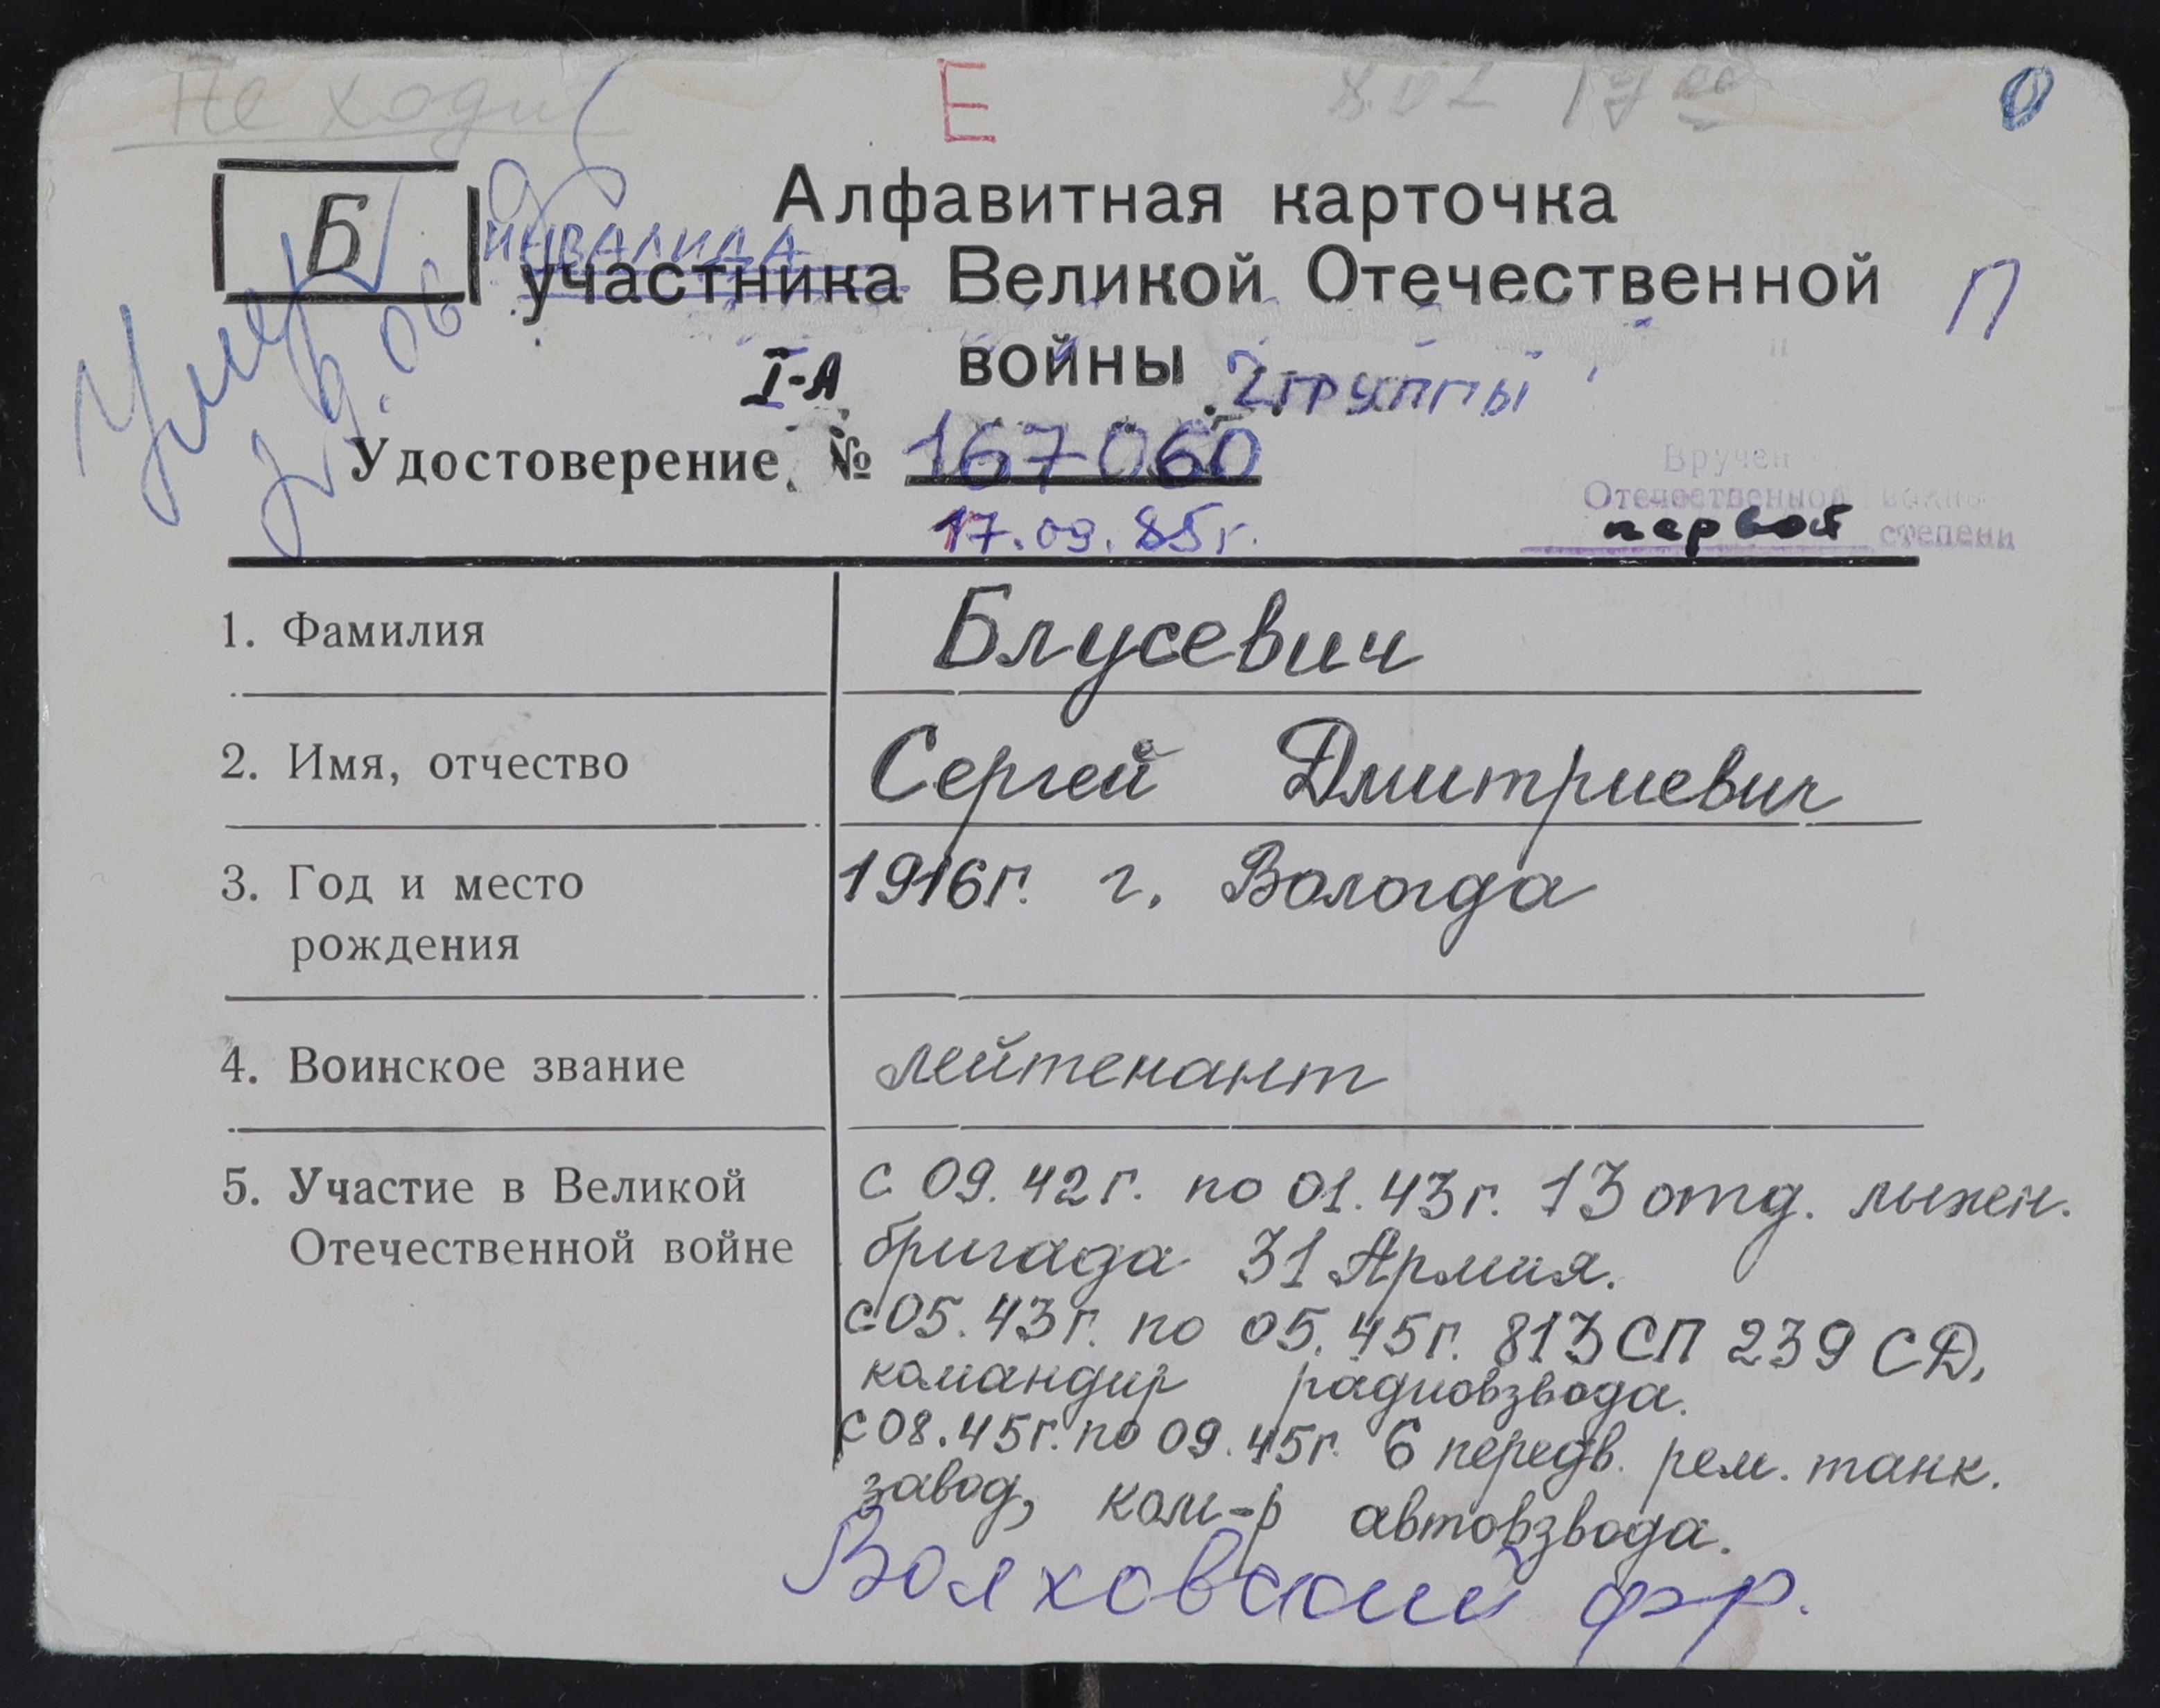 Не ходит
Е
8.02 19
О
Б
Алфавитная карточка
инвалида
участника Великой Отечественной
П
войны
I-А
2 группы
Умер
9.06
Удостоверение № 167060
17.09.85г.
Вручен
Отечественной войны
первой степени
1. Фамилия
Блусевич
2. Имя, отчество
Сергей Дмитриевич
3. Год и место
рождения
1916г. г. Вологда
4. Воинское звание
лейтенант
5. Участие в Великой
Отечественной войне
с 09.42г. по 01.43г. 13 отд. лыжен.
бригада 31 Армия.
с 05.43г. по 05.45г. 813 СП 239 СД,
командир радиовзвода.
с 08.45г. по 09.45г. 6 передв. рем. танк.
завод, ком-р автовзвода.
Волховский фр.